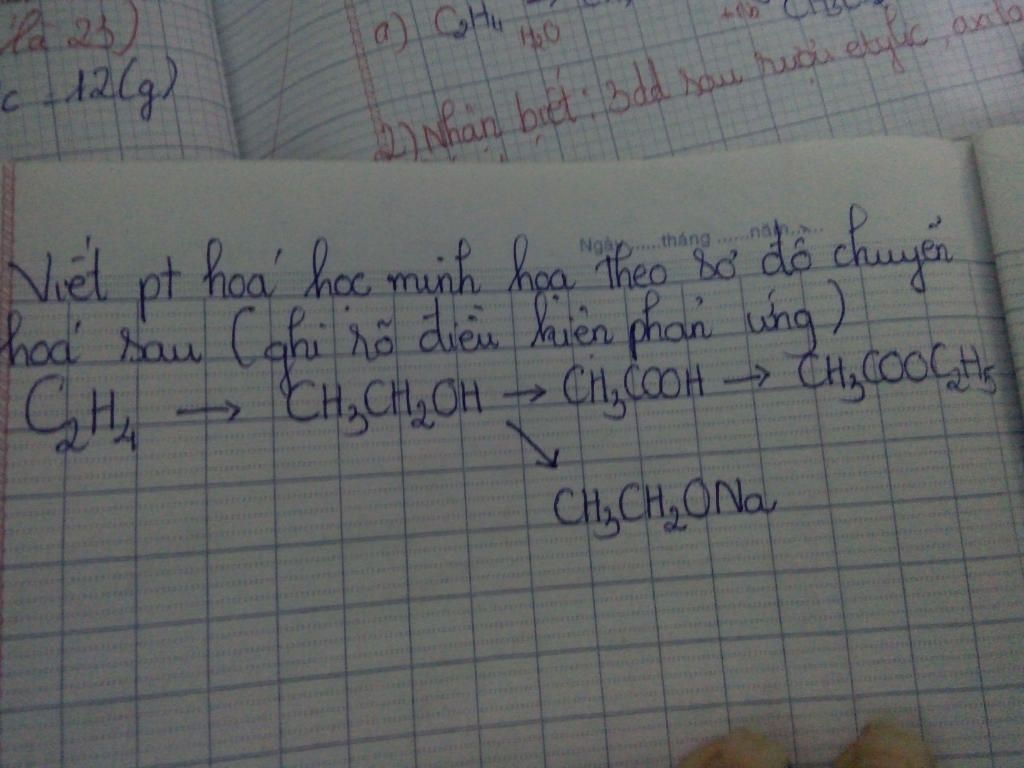 23)
12(g)
a) C₂H₄
H₂O
2) Nhận biết: 3dd sau rượu etylic, axit
Ngày......tháng......năm......
Viết pt hoá học minh họa theo sơ đồ chuyển
hoá sau (ghi rõ điều kiện phản ứng)
C₂H₄ → CH₃CH₂OH → CH₃COOH → CH₃COOC₂H₅
↘
CH₃CH₂ONa